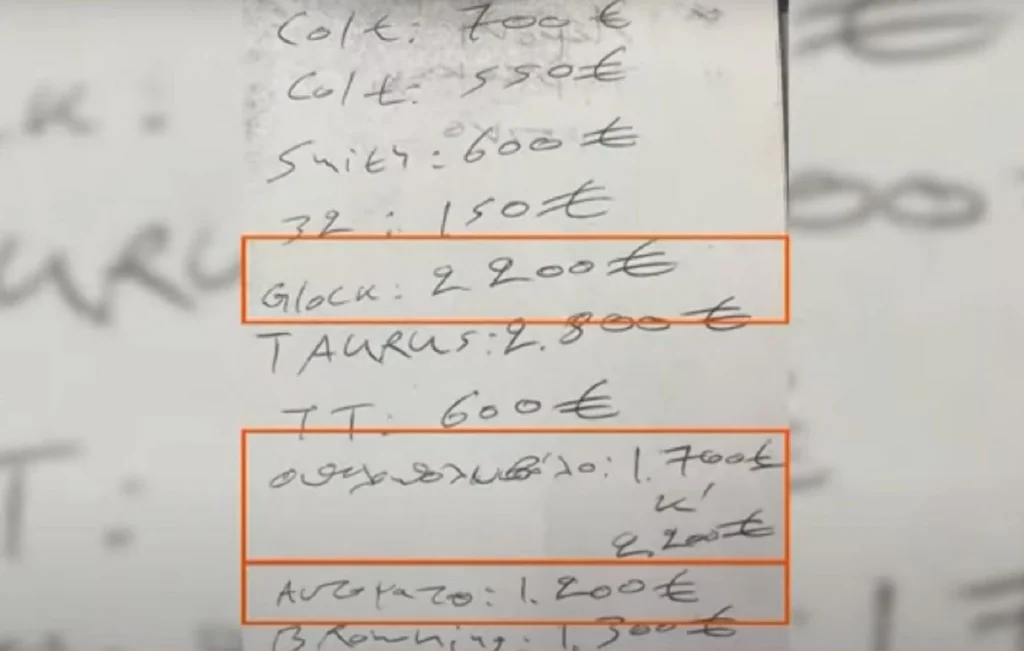 Colt: 700€
Colt: 550€
Smith: 600€
32: 150€
Glock: 2200€
TAURUS: 2.800€
TT: 600€
οπλοπολυβόλο: 1.700€
κ'
2.200€
Αυτοματο: 1.200€
Browning: 1.300€